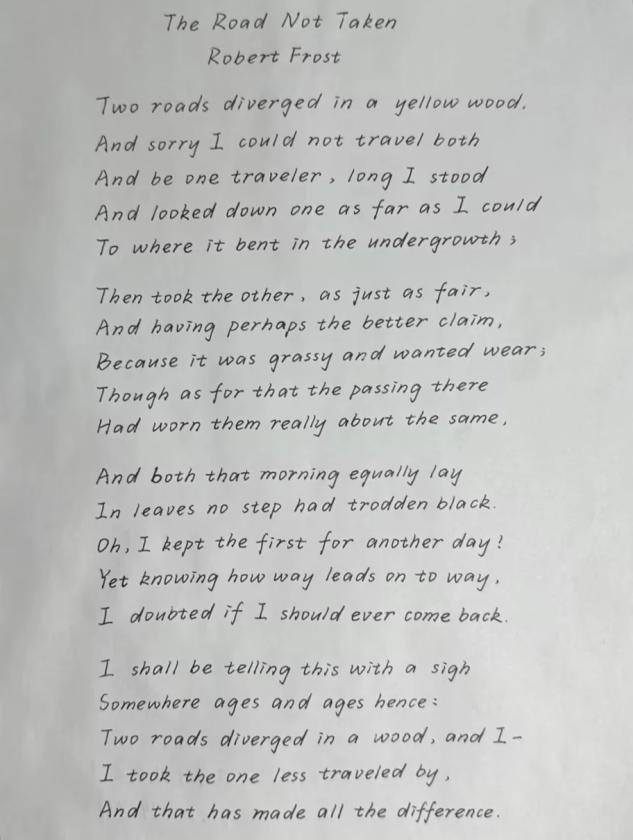 The Road Not Taken
Robert Frost
Two roads diverged in a yellow wood.
And sorry I could not travel both
And be one traveler, long I stood
And looked down one as far as I could
To where it bent in the undergrowth;
Then took the other, as just as fair,
And having perhaps the better claim,
Because it was grassy and wanted wear;
Though as for that the passing there
Had worn them really about the same,
And both that morning equally lay
In leaves no step had trodden black.
Oh, I kept the first for another day!
Yet knowing how way leads on to way,
I doubted if I should ever come back.
I shall be telling this with a sigh
Somewhere ages and ages hence:
Two roads diverged in a wood, and I-
I took the one less traveled by,
And that has made all the difference.